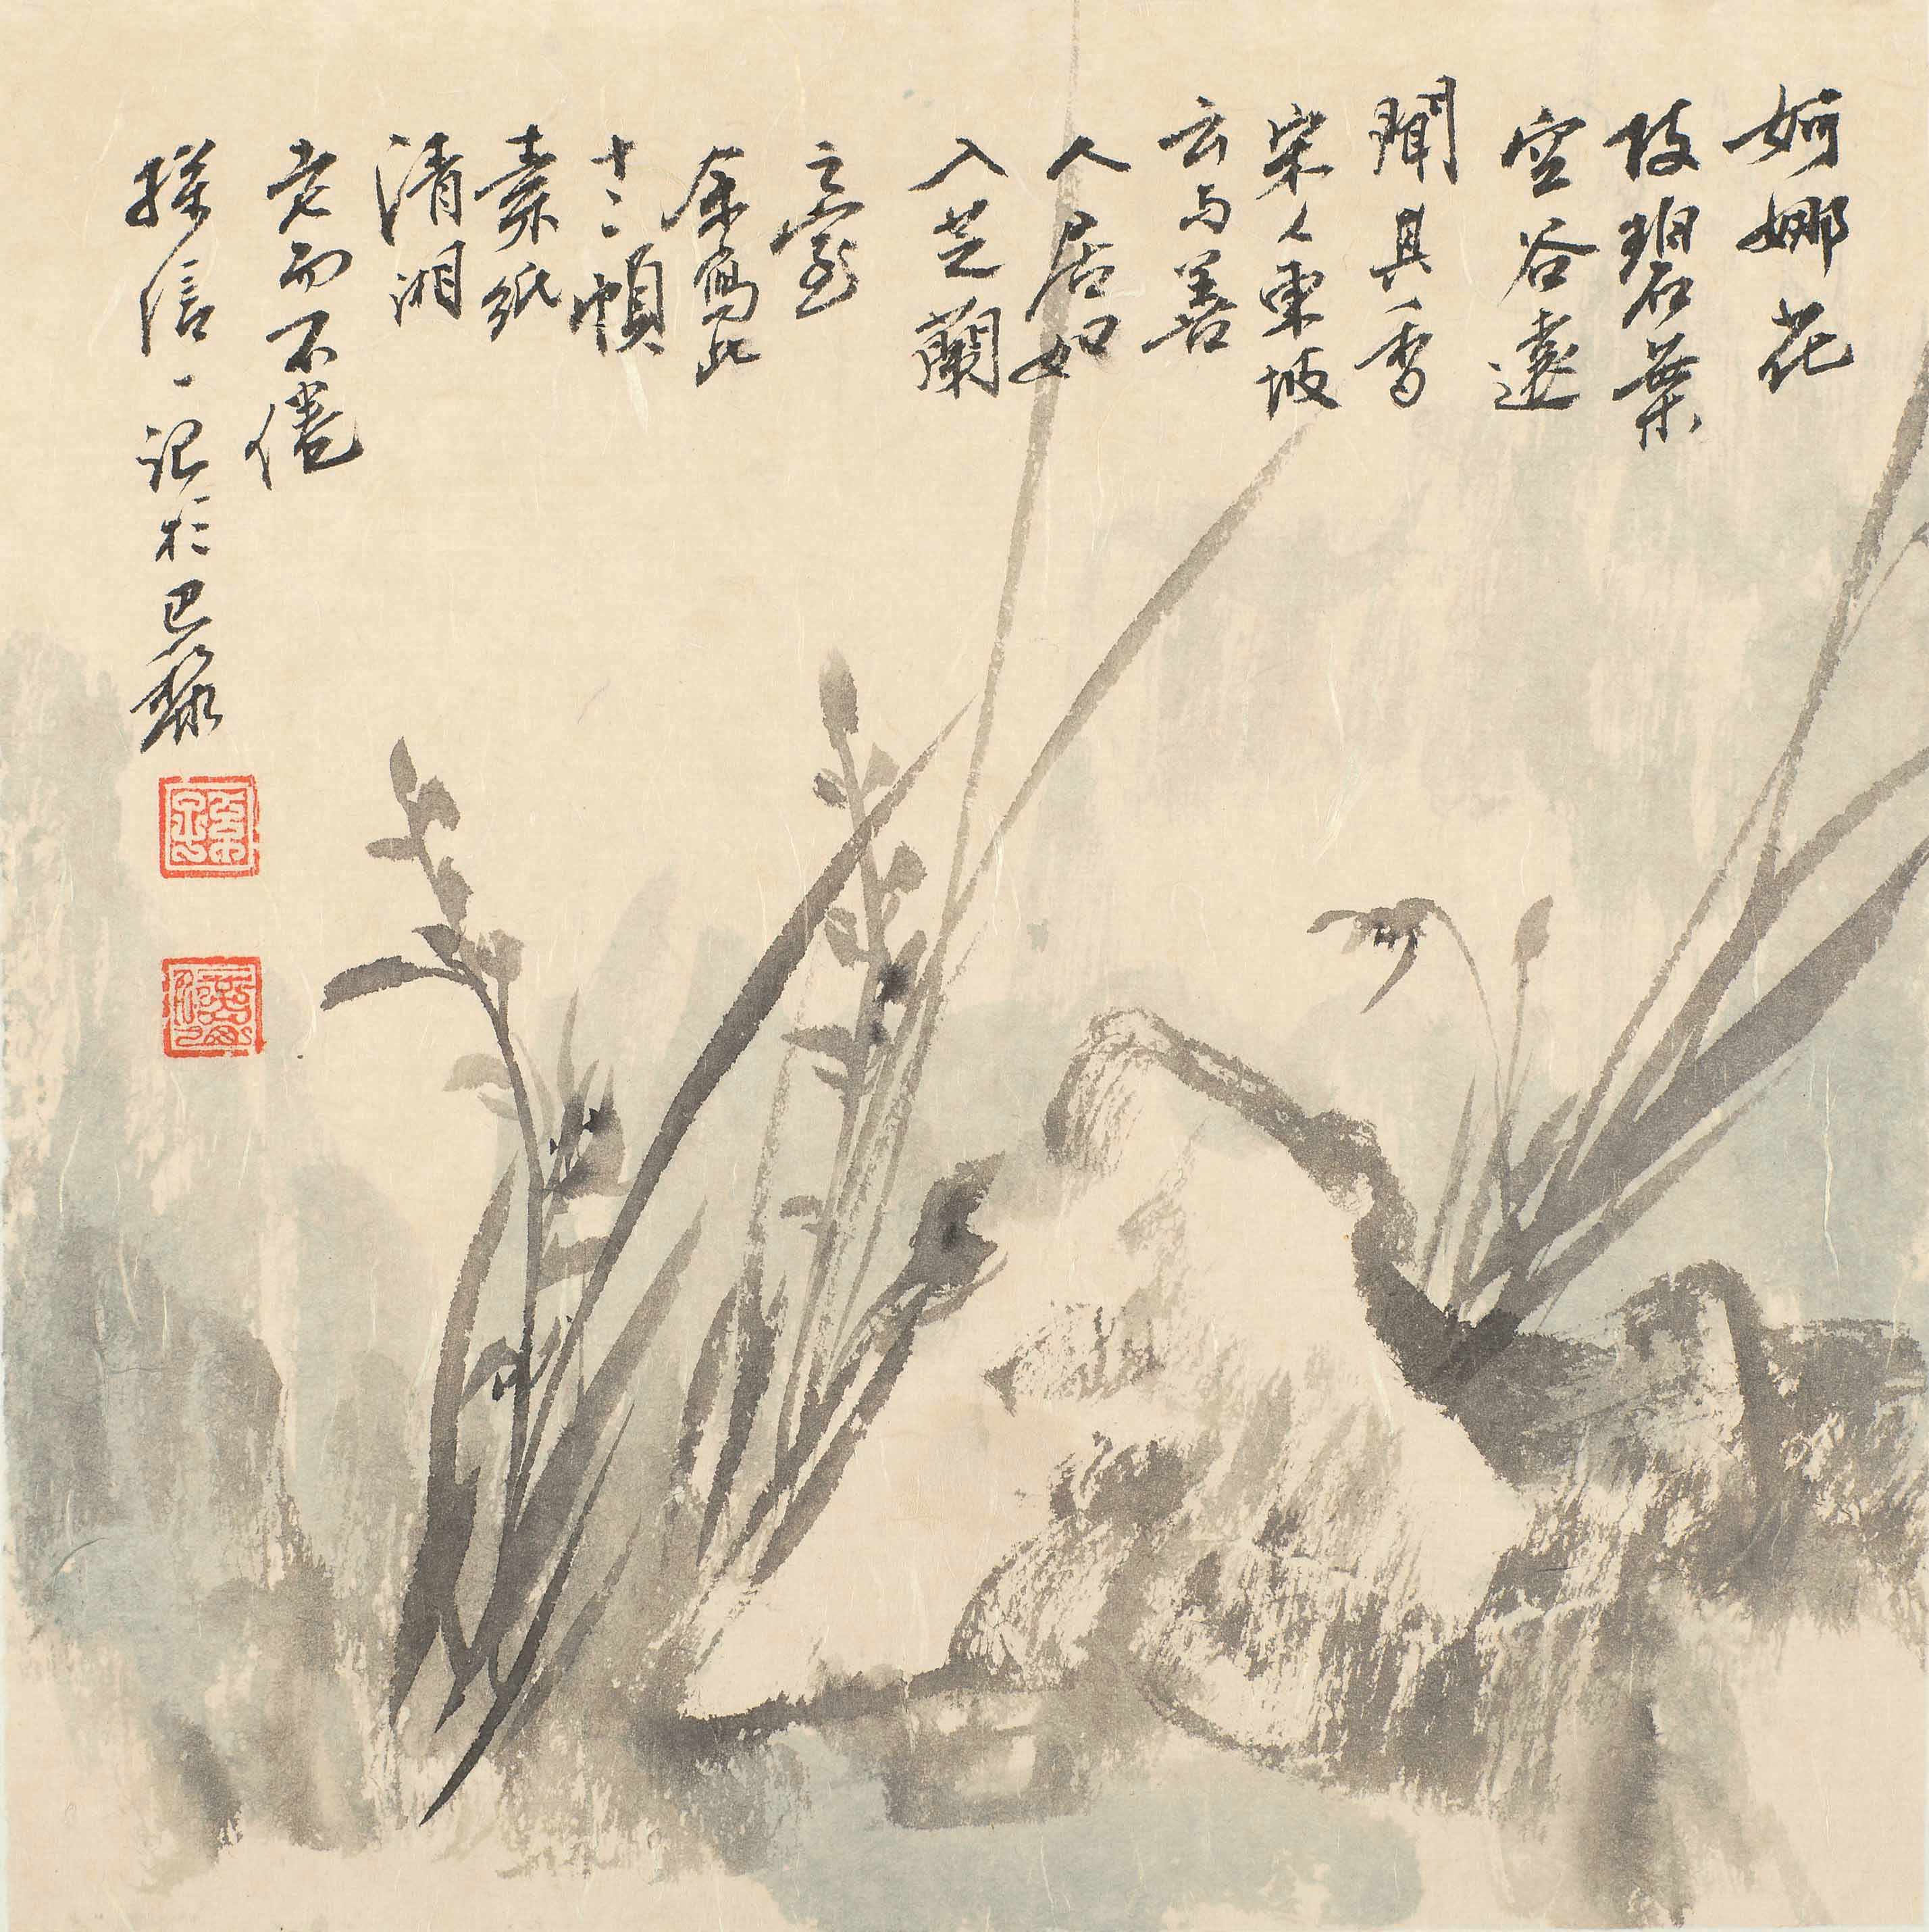 婀娜花
枝碧葉
空谷遠
聞具香
宋人東坡
云與善
人居如
入芝蘭
之室
余寫此
十二幀
素紙
清湘
老而不倦
孫信一記於巴黎